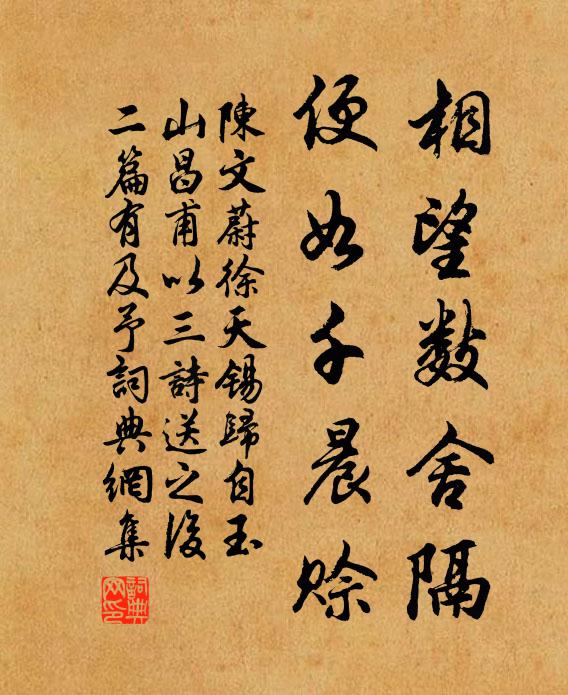 相望數舍隔
便如千晨賒
陳文蔚徐天錫歸自玉
山昌甫以三詩送之後
二篇有及予詞典網集
詞典网印